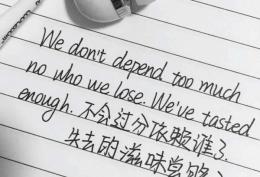 We don't depend too much
no who we lose. We've tasted
enough. 不会过分依赖谁了.
失去的滋味尝够